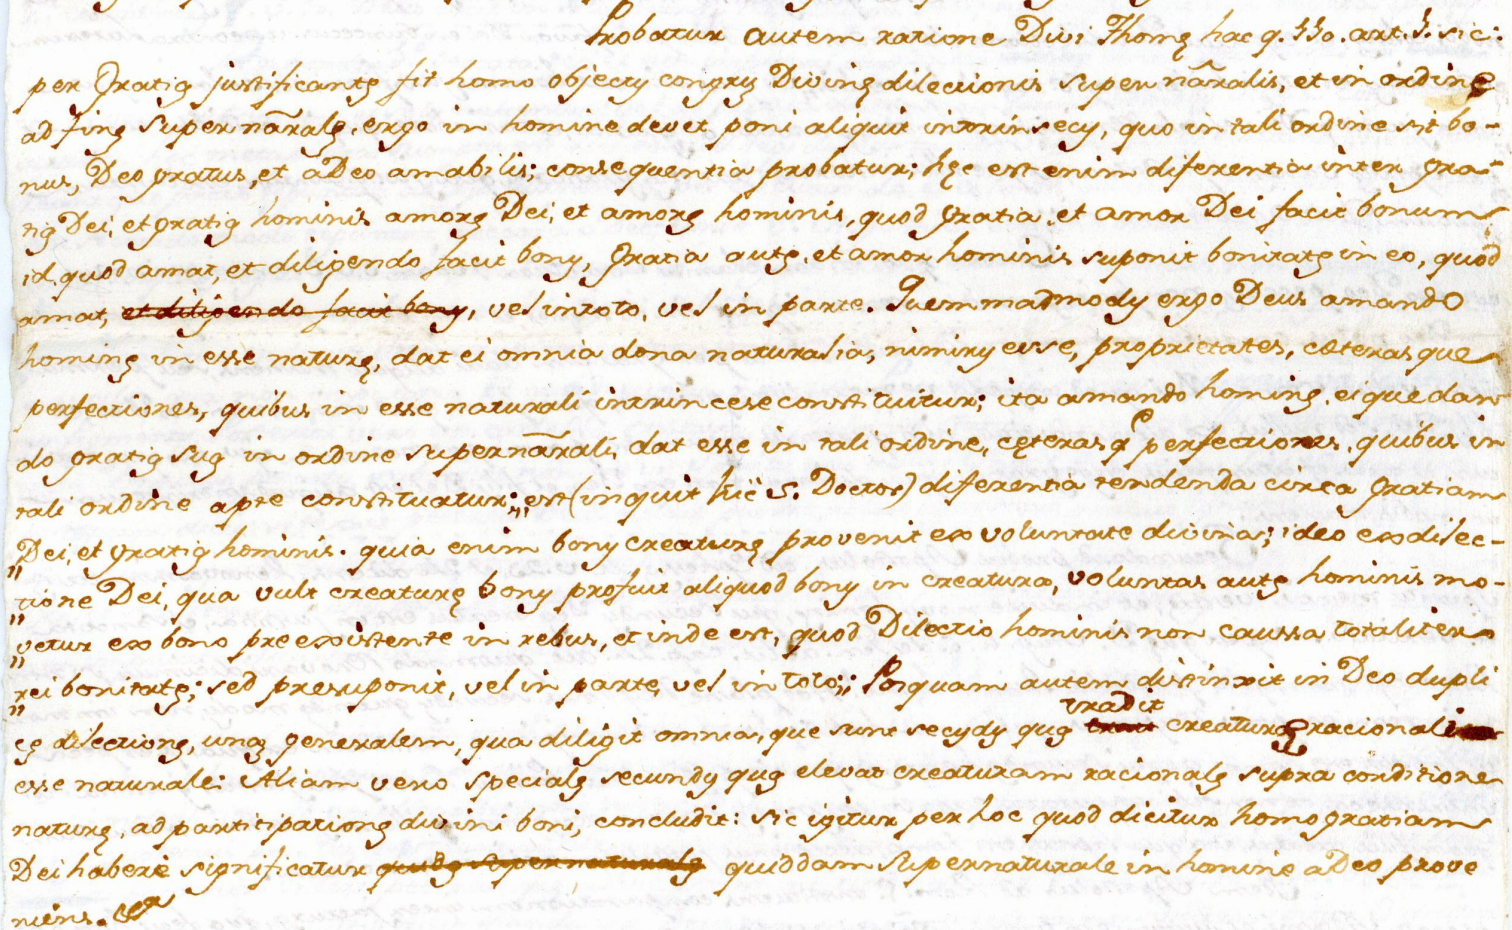 Probatur autem ratione Divi Thomę hac q. 110. art. 1. sic:
per Gratiȩ justificantȩ fit homo objecty congrȝ Divinę dilectionis supernãralis, et in ordinę
ad finȩ supernãralȩ, ergo in homine devet poni aliquit intrinsecy, quo in tali ordine sit bo-
nus, Deo gratus, et a Deo amabilis; consequentia probatur; hȩc est enim diferentia inter gra-
tiȩ Dei, et gratiȩ hominis amorȩ Dei, et amorȩ hominis, quod gratia, et amor Dei facit bonum
id quod amat, et diligendo facit bony, Gratia autȩ, et amor hominis suponit bonitatȩ in eo, quod
amat, et diligendo facit bony, vel in toto, vel in parte. Quemmadmody ergo Deus amando
hominȩ in esse naturȩ, dat ei omnia dona naturalia, nimiry esse, proprietates, cæterasque
perfectiones, quibus in esse naturali intrincese constituitur; ita amando hominȩ, eique dan
do gratiȩ suȩ in ordine supernãrali, dat esse in tali ordine, cȩterasqᵉ perfectiones, quibus in
tali ordine apte constituatur; „est (inquit hic S. Doctor) diferentia tendenda circa gratiam
Dei, et gratiȩ hominis. quia enim bony creaturȩ provenit ex voluntate divina; ideo ex dilec-
„tione Dei, qua vult creaturȩ bony profuit aliquod bony in creatura, voluntas autȩ hominis mo-
„vetur ex bono preexistente in rebus, et inde est, quod Dilectio hominis non caussa totaliter
„rei bonitatȩ; sed presuponit, vel in parte, vel in toto;„ Posquam autem distinxit in Deo dupli
„cȩ dilectionȩ, unaȩ generalem, qua diligit omnia, que sunt secydy quȩ tradit creaturaȩ racionali
esse naturale: Aliam vero specialȩ secundy quȩ elevat creaturam racionalȩ supra conditione
naturȩ, ad participationȩ divini boni, concludit: sic igitur per hoc quod dicitur homo gratiam
Dei habere significatur quidȩ supernaturalȩ quiddam supernaturale in homine a Deo prove
niens.